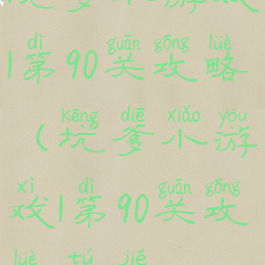 dì guān gōng lüè
1第90关攻略
kēng diē xiǎo yóu
（坑爹小游
xì dì guān gōng
戏1第90关攻
lüè tú jiě